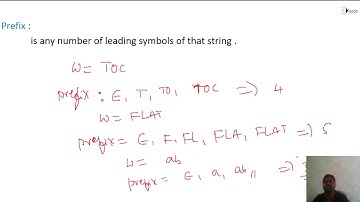 Prefix :
is any number of leading symbols of that string .
W= TOC
prefix : ε, T, TO, TOC => 4
W= FLAT
prefix = ε, F, FL, FLA, FLAT => 5
W= ab
prefix = ε, a, ab,, => 3